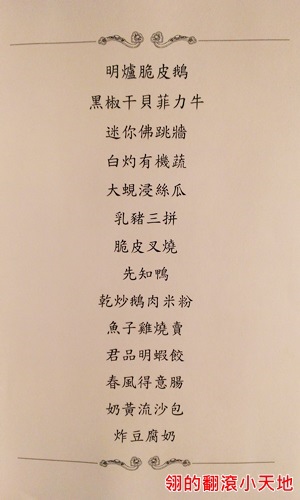 明爐脆皮鵝
黑椒干貝菲力牛
迷你佛跳牆
白灼有機蔬
大蜆浸絲瓜
乳豬三拼
脆皮叉燒
先知鴨
乾炒鵝肉米粉
魚子雞燒賣
君品明蝦餃
春風得意腸
奶黃流沙包
炸豆腐奶
翎的翻滾小天地